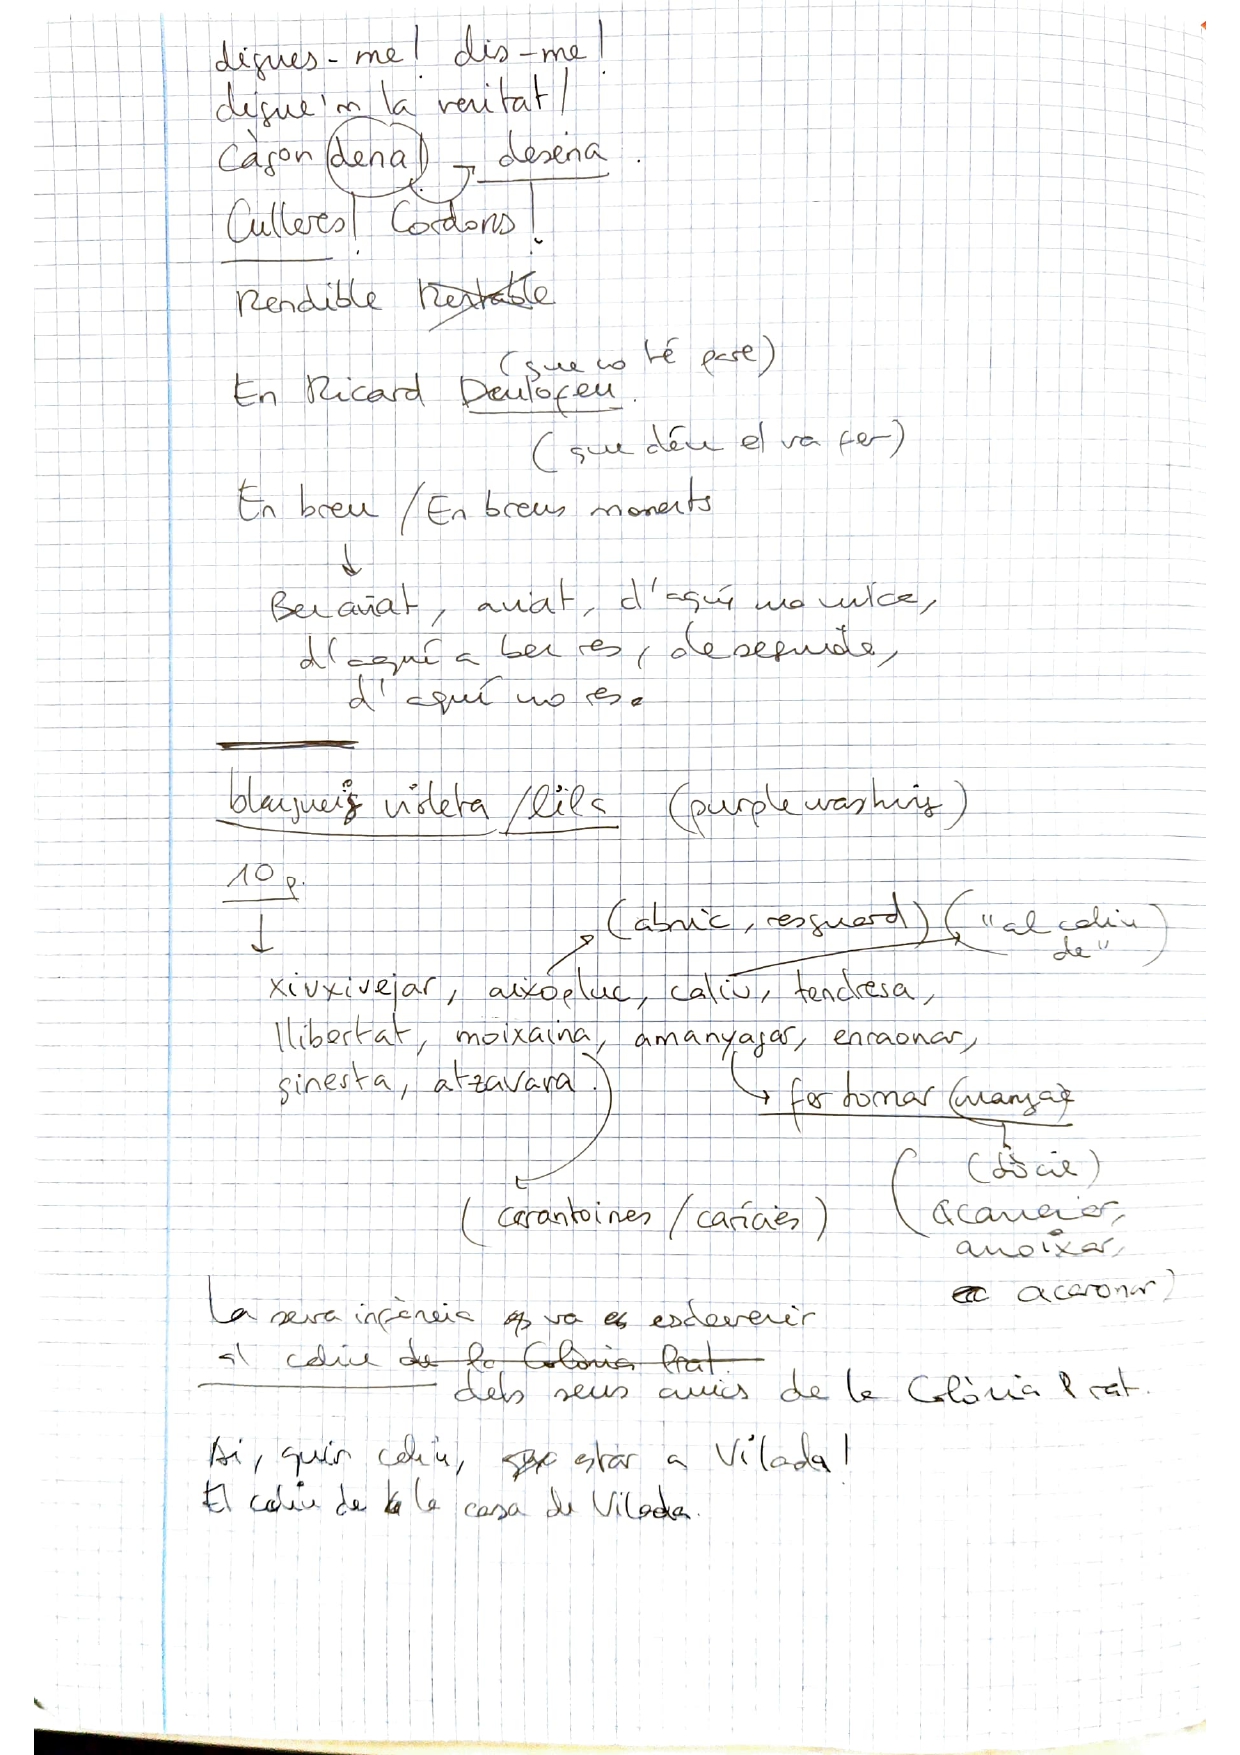 digues-me! dis-me!
digue'm la veritat!
Càgon dena → desena.
Culleres! Cordons!
Rendible Rentable
(que no té pare)
En Ricard Deulofeu.
(que déu el va fer)
En breu / En breus moments
↓
Ben aviat, aviat, d'aquí una mica,
d'aquí a ben res, de seguida,
d'aquí no res.
blanqueig violeta / lila (purple washing)
10 p.
↓
(abric, resguard) ("al caliu de")
xiuxivejar, aixopluc, caliu, tendresa,
llibertat, moixaina, amanyagar, enraonar,
ginesta, atzavara.
→ fer tornar (manyac)
(dòcil)
(carantoines / carícies) (acariciar,
amoixar,
acaronar)
La seva infància es va esdevenir
al caliu de la Colònia Prat.
dels seus amics de la Colònia Prat.
Ai, quin caliu, estar a Vilada!
El caliu de la casa de Vilada.